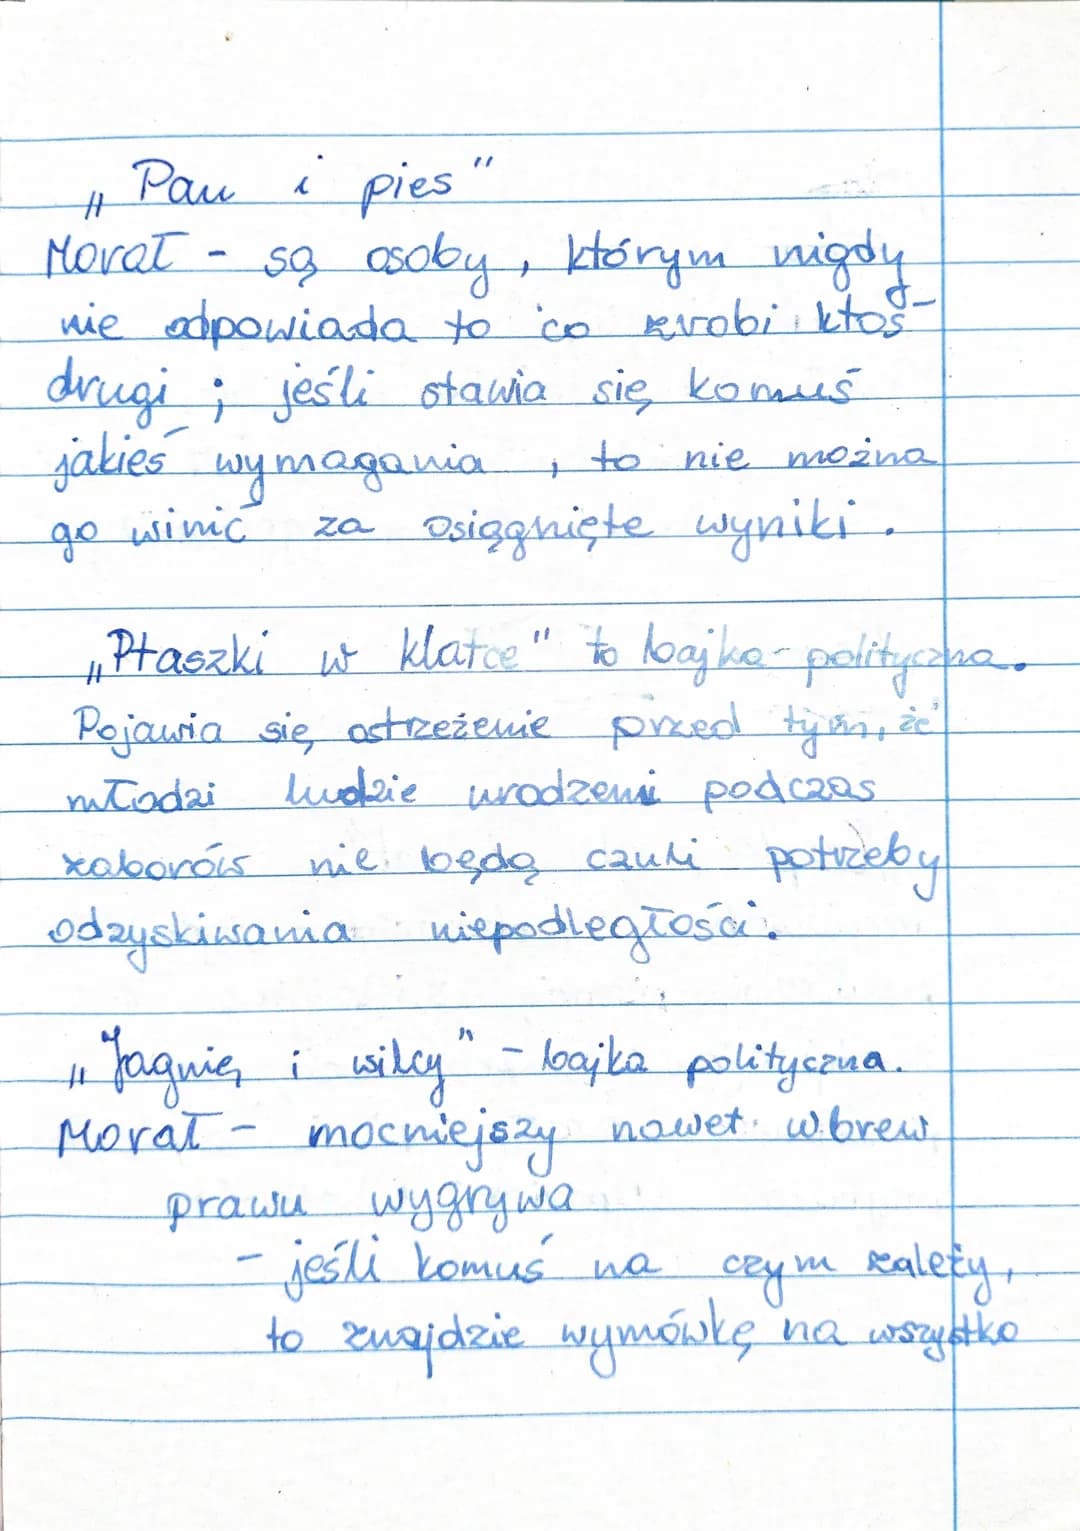 „Pan i pies"
Morał - są osoby, którym nigdy
nie odpowiada to co zrobi ktoś
drugi ; jeśli stawia się komuś
jakieś wymagania, to nie można
go winić za osiągnięte wyniki.
„Ptaszki w klatce" to bajka polityczna.
Pojawia się ostrzeżenie przed tym, że
młodzi ludzie urodzeni podczas
zaborów nie będą czuli potrzeby
odzyskiwania niepodległości.
„Jagnię i wilcy" - bajka polityczna.
Morał - mocniejszy nawet wbrew
prawu wygrywa
- jeśli komuś na czym zależy,
to znajdzie wymówkę na wszystko